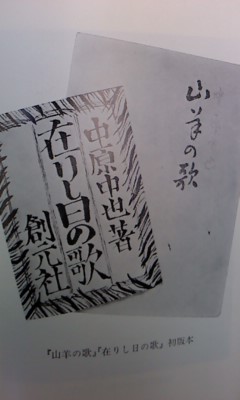 山羊の歌
中原中也著
在りし日の歌
創元社
『山羊の歌』『在りし日の歌』 初版本